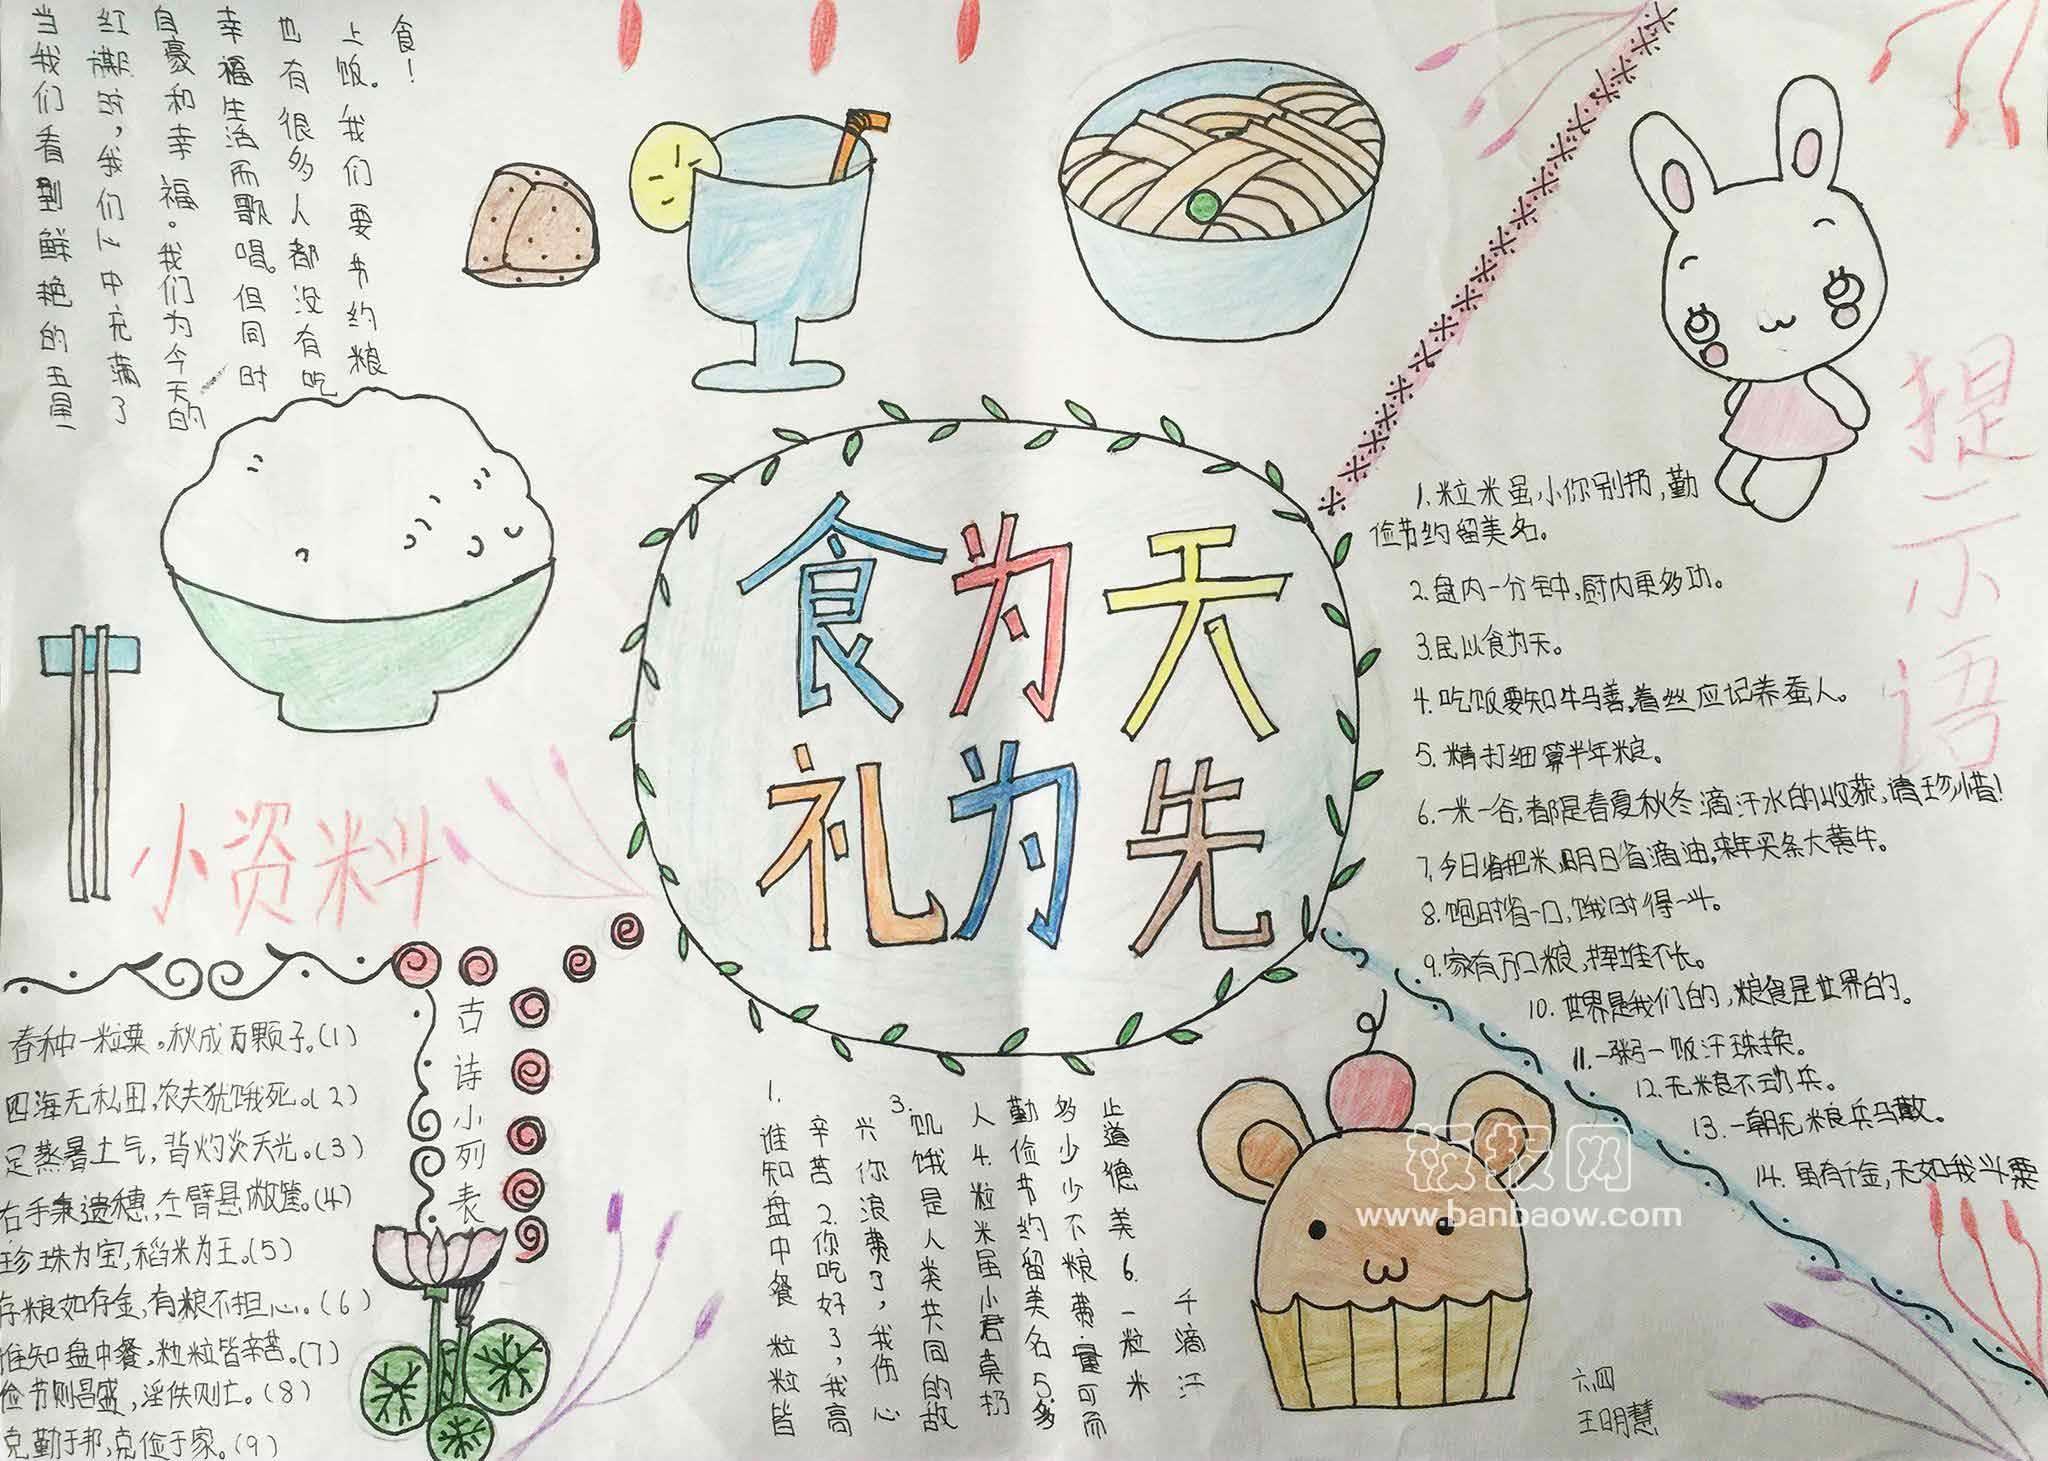 当我们看到鲜艳的五星
红旗时，我们心中充满了
自豪和幸福。我们为今天的
幸福生活而歌唱。但同时
也有很多人都没有吃
上饭。我们要节约粮
食！
食为天
礼为先
小资料
古诗小列表
春种一粒粟。秋成万颗子。(1)
四海无私田，农夫犹饿死。(2)
足蒸暑土气，背灼炎天光。(3)
右手秉遗穗，左臂悬敝筐。(4)
珍珠为宝，稻米为王。(5)
存粮如存金，有粮不担心。(6)
谁知盘中餐，粒粒皆辛苦。(7)
俭节则昌盛，淫佚则亡。(8)
克勤于邦，克俭于家。(9)
1. 谁知盘中餐 粒粒皆
辛苦 2.你吃好了，我高
兴你浪费了，我伤心
3. 饥饿是人类共同的敌
人 4.粒米虽小君莫扔
勤俭节约留美名 5.多
多少少不粮费量可而
止道德美 6.一粒米
千滴汗
提示语
1.粒米虽小你别扔，勤
俭节约留美名。
2.盘内一分钟，厨内更多功。
3.民以食为天。
4.吃饭要知牛马善。着丝应记养蚕人。
5.精打细算半年粮。
6.一米一谷，都是春夏秋冬滴汗水的收获，请珍惜！
7.今日省把米，明日省滴油。来年买条大黄牛。
8.饱时省一口，饿时得一斗。
9.家有万口粮，挥堆不长。
10.世界是我们的，粮食是世界的。
11.一粥一饭汗珠换。
12.无粮不动兵。
13.一朝无粮兵马散。
14.虽有千金，无如我斗粟
六四
王明慧
板报网
www.banbaow.com